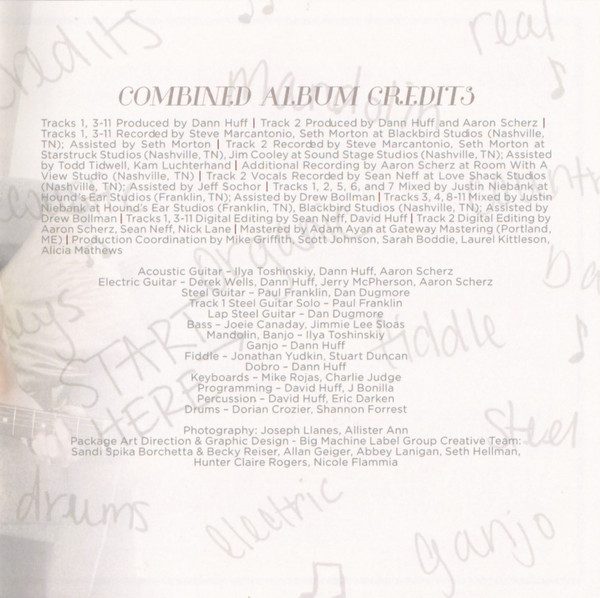 credits
real
Mandolin
COMBINED ALBUM CREDITS
Tracks 1, 3-11 Produced by Dann Huff | Track 2 Produced by Dann Huff and Aaron Scherz |
Tracks 1, 3-11 Recorded by Steve Marcantonio, Seth Morton at Blackbird Studios (Nashville,
TN); Assisted by Seth Morton | Track 2 Recorded by Steve Marcantonio, Seth Morton at
Starstruck Studios (Nashville, TN), Jim Cooley at Sound Stage Studios (Nashville, TN); Assisted
by Todd Tidwell, Kam Luchterhand | Additional Recording by Aaron Scherz at Room With A
View Studio (Nashville, TN) | Track 2 Vocals Recorded by Sean Neff at Love Shack Studios
(Nashville, TN); Assisted by Jeff Sochor | Tracks 1, 2, 5, 6, and 7 Mixed by Justin Niebank
at Hound's Ear Studios (Franklin, TN); Assisted by Drew Bollman | Tracks 3, 4, 8-11 Mixed by Justin
Niebank at Hound's Ear Studios (Franklin, TN), Blackbird Studios (Nashville, TN); Assisted by
Drew Bollman | Tracks 1, 3-11 Digital Editing by Sean Neff, David Huff | Track 2 Digital Editing by
Aaron Scherz, Sean Neff, Nick Lane | Mastered by Adam Ayan at Gateway Mastering (Portland,
ME) | Production Coordination by Mike Griffith, Scott Johnson, Sarah Boddie, Laurel Kittleson,
Alicia Mathews
Acoustic Guitar – Ilya Toshinskiy, Dann Huff, Aaron Scherz
Electric Guitar – Derek Wells, Dann Huff, Jerry McPherson, Aaron Scherz
Steel Guitar – Paul Franklin, Dan Dugmore
Track 1 Steel Guitar Solo – Paul Franklin
Lap Steel Guitar – Dan Dugmore
Bass – Joeie Canaday, Jimmie Lee Sloas
Mandolin, Banjo – Ilya Toshinskiy
Ganjo – Dann Huff
Fiddle – Jonathan Yudkin, Stuart Duncan
Dobro – Dann Huff
Keyboards – Mike Rojas, Charlie Judge
Programming – David Huff, J Bonilla
Percussion – David Huff, Eric Darken
Drums – Dorian Crozier, Shannon Forrest
Photography: Joseph Llanes, Allister Ann
Package Art Direction & Graphic Design - Big Machine Label Group Creative Team:
Sandi Spika Borchetta & Becky Reiser, Allan Geiger, Abbey Lanigan, Seth Hellman,
Hunter Claire Rogers, Nicole Flammia
START
HERE
fiddle
Steel
drums
electric
ganjo